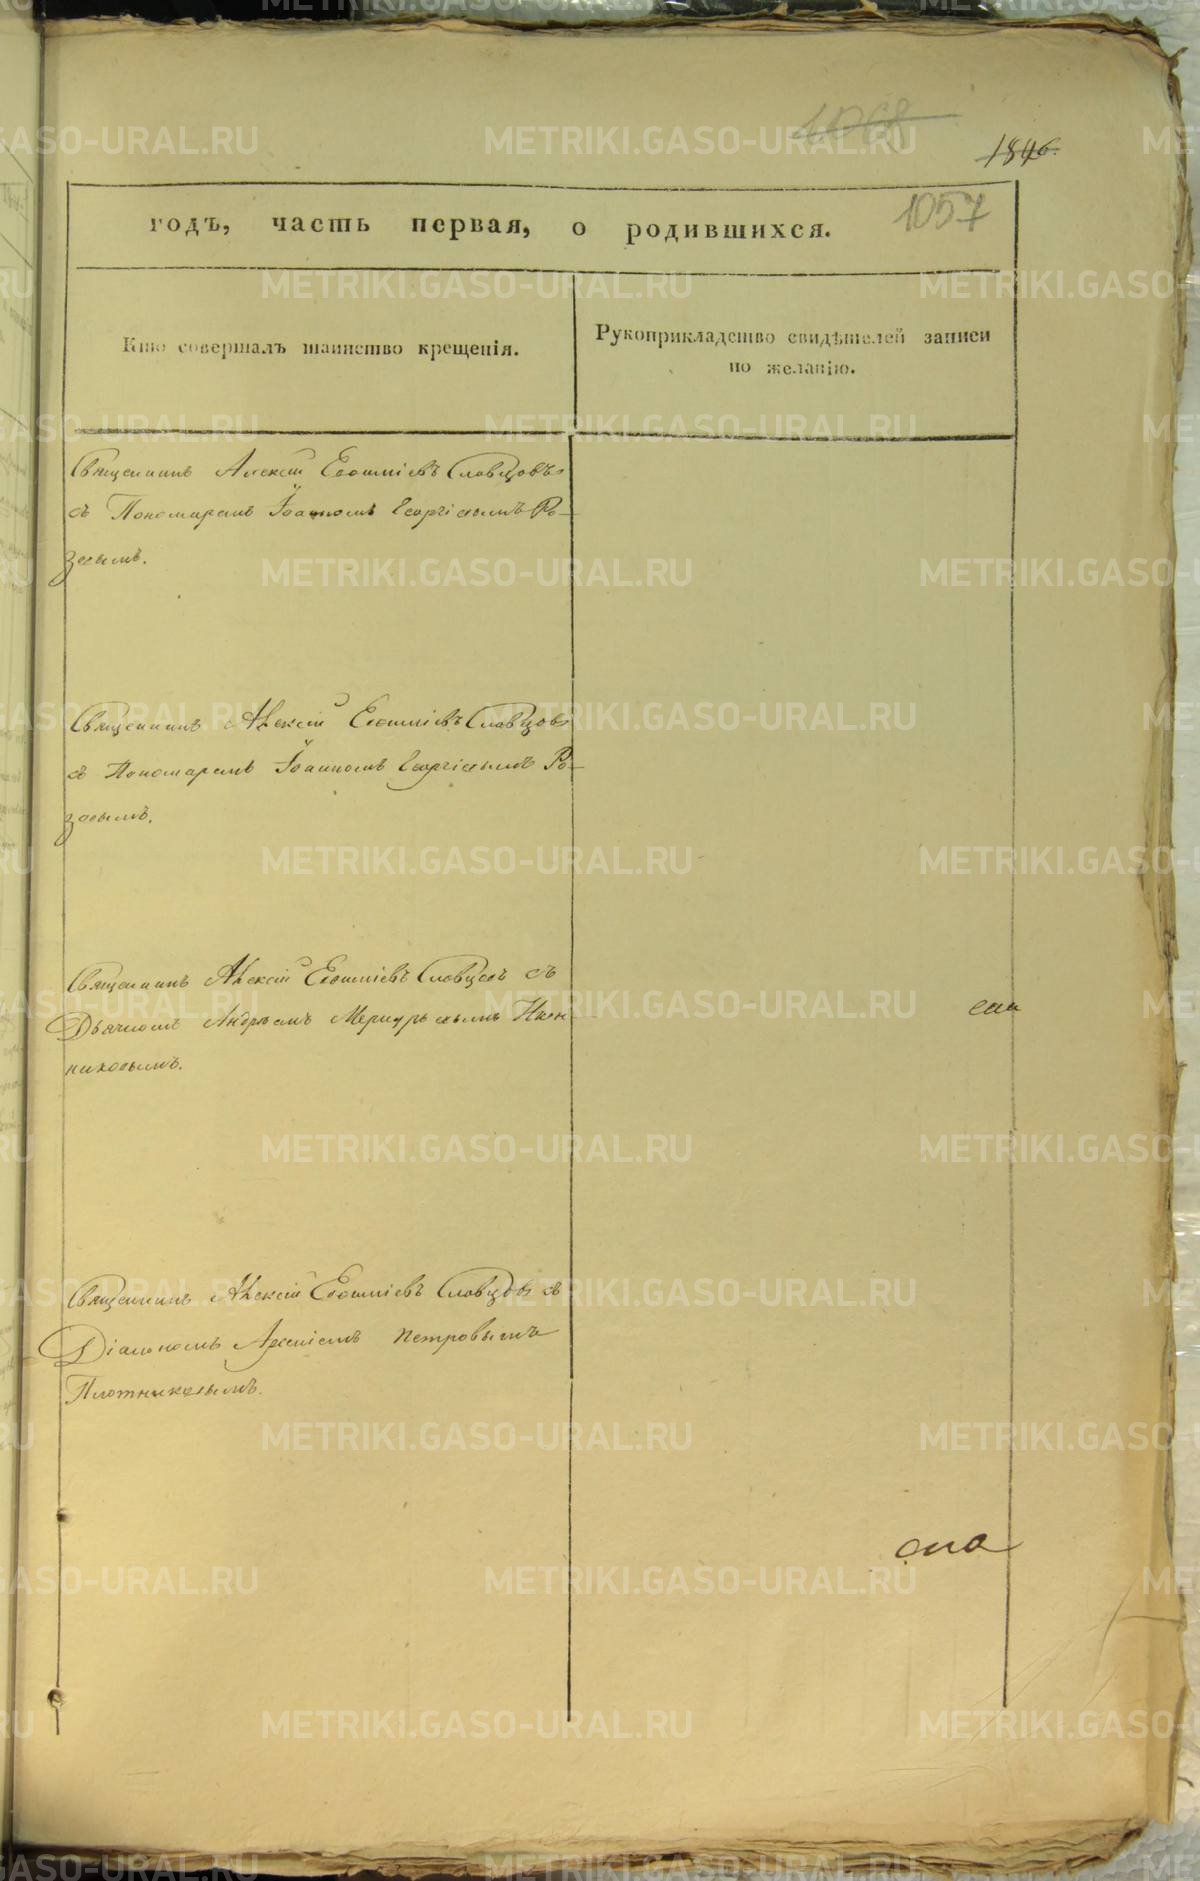 1068
1846.
1057
годъ, часть первая, о родившихся.
Кто совершалъ таинство крещенія.
Рукоприкладство свидѣтелей записи
по желанію.
Священникъ Алексій Словцовъ
съ Пономаремъ Іоанномъ Георгіевымъ Ро-
зовымъ.
Священникъ Алексій Словцовъ
съ Пономаремъ Іоанномъ Георгіевымъ Ро-
зовымъ.
Священникъ Алексій Словцовъ съ
Дьячкомъ Андреемъ Меркурьевымъ
никовымъ.
Священникъ Алексій Словцовъ съ
Діакономъ Арсеніемъ Петровымъ
Плотниковымъ.
METRIKI.GASO-URAL.RU